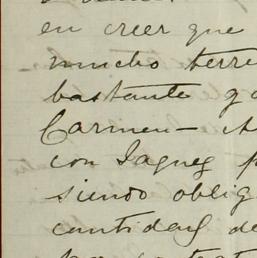 en creer que
mucho terre
bastante q
Carmen— A
con Jaques p
siendo oblig
cantidad de